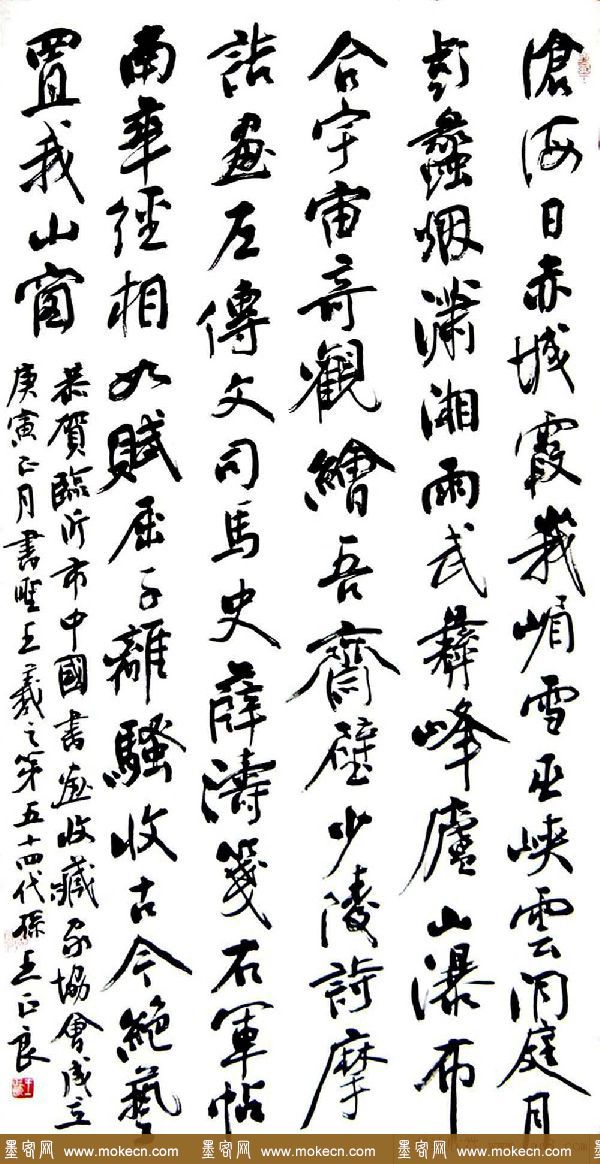 滄海日赤城霞峩嵋雪巫峽雲洞庭月
彭蠡烟瀟湘雨武彝峰廬山瀑布
合宇宙奇觀繪吾齋壁少陵詩摩
詰畫左傳文司馬史薛濤箋右軍帖
南華經相如賦屈子離騷收古今絕藝
置我山窗
恭賀臨沂市中國書畫收藏家協會成立
庚寅正月書聖王羲之第五十四代孫王正良
墨客网 www.mokecn.com 墨客网 www.mokecn.com 墨客网 www.mokecn.com